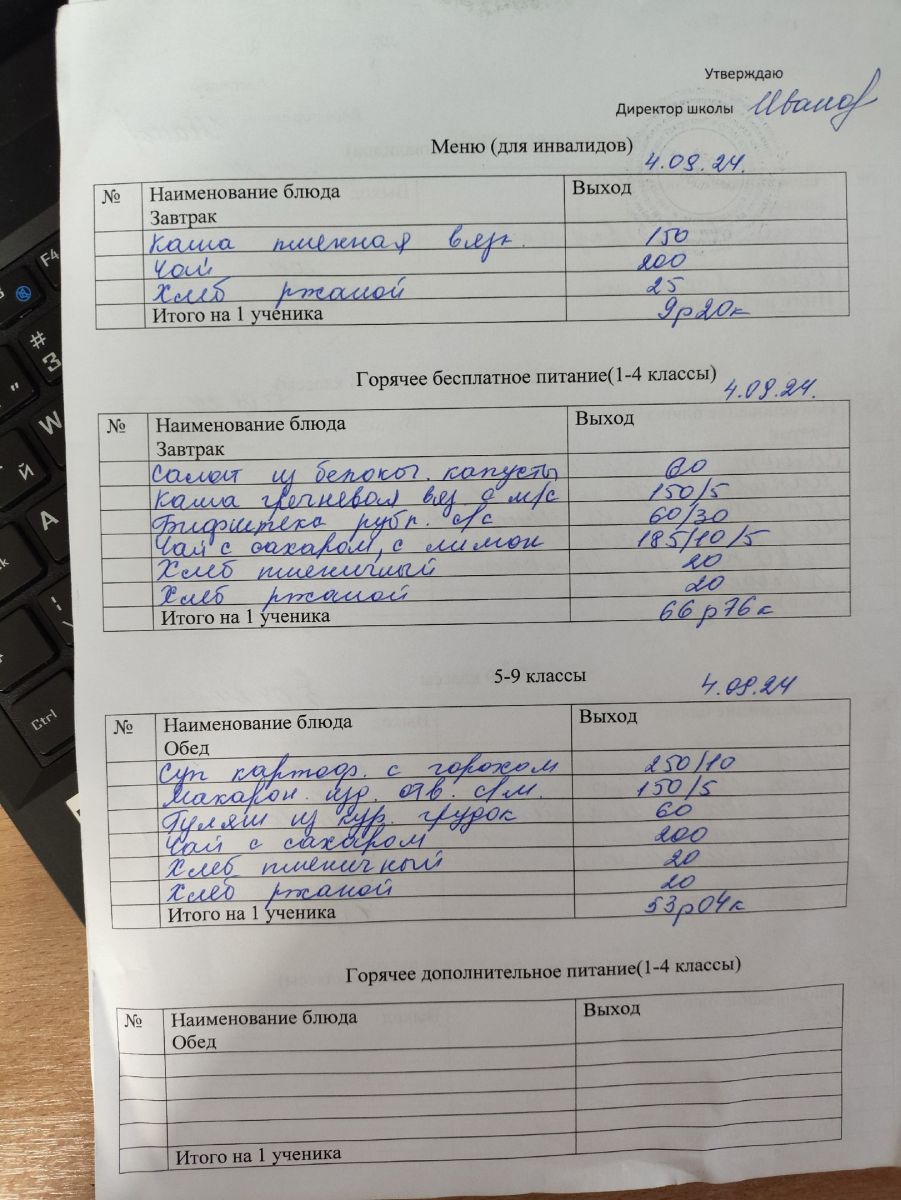 Утверждаю
Директор школы Иванов
Меню (для инвалидов)
4.09.24.
№ Наименование блюда Выход
Завтрак
Каша пшенная вязк. 150
Чай 200
Хлеб ржаной 25
Итого на 1 ученика 9р20к
Горячее бесплатное питание(1-4 классы)
4.09.24.
№ Наименование блюда Выход
Завтрак
Салат из белокоч. капусты 60
Каша гречневая вяз с м/с 150/5
Бифштекс рубл. с/с 60/30
Чай с сахаром, с лимон 185/10/5
Хлеб пшеничный 20
Хлеб ржаной 20
Итого на 1 ученика 66р76к
5-9 классы
4.09.24
№ Наименование блюда Выход
Обед
Суп картоф. с горохом 250/10
Макарон. изд. отв. с/м. 150/5
Гуляш из кур. грудок 60
Чай с сахаром 200
Хлеб пшеничный 20
Хлеб ржаной 20
Итого на 1 ученика 53р04к
Горячее дополнительное питание(1-4 классы)
№ Наименование блюда Выход
Обед
Итого на 1 ученика
F4
#
3
W
Й
A
Ctrl